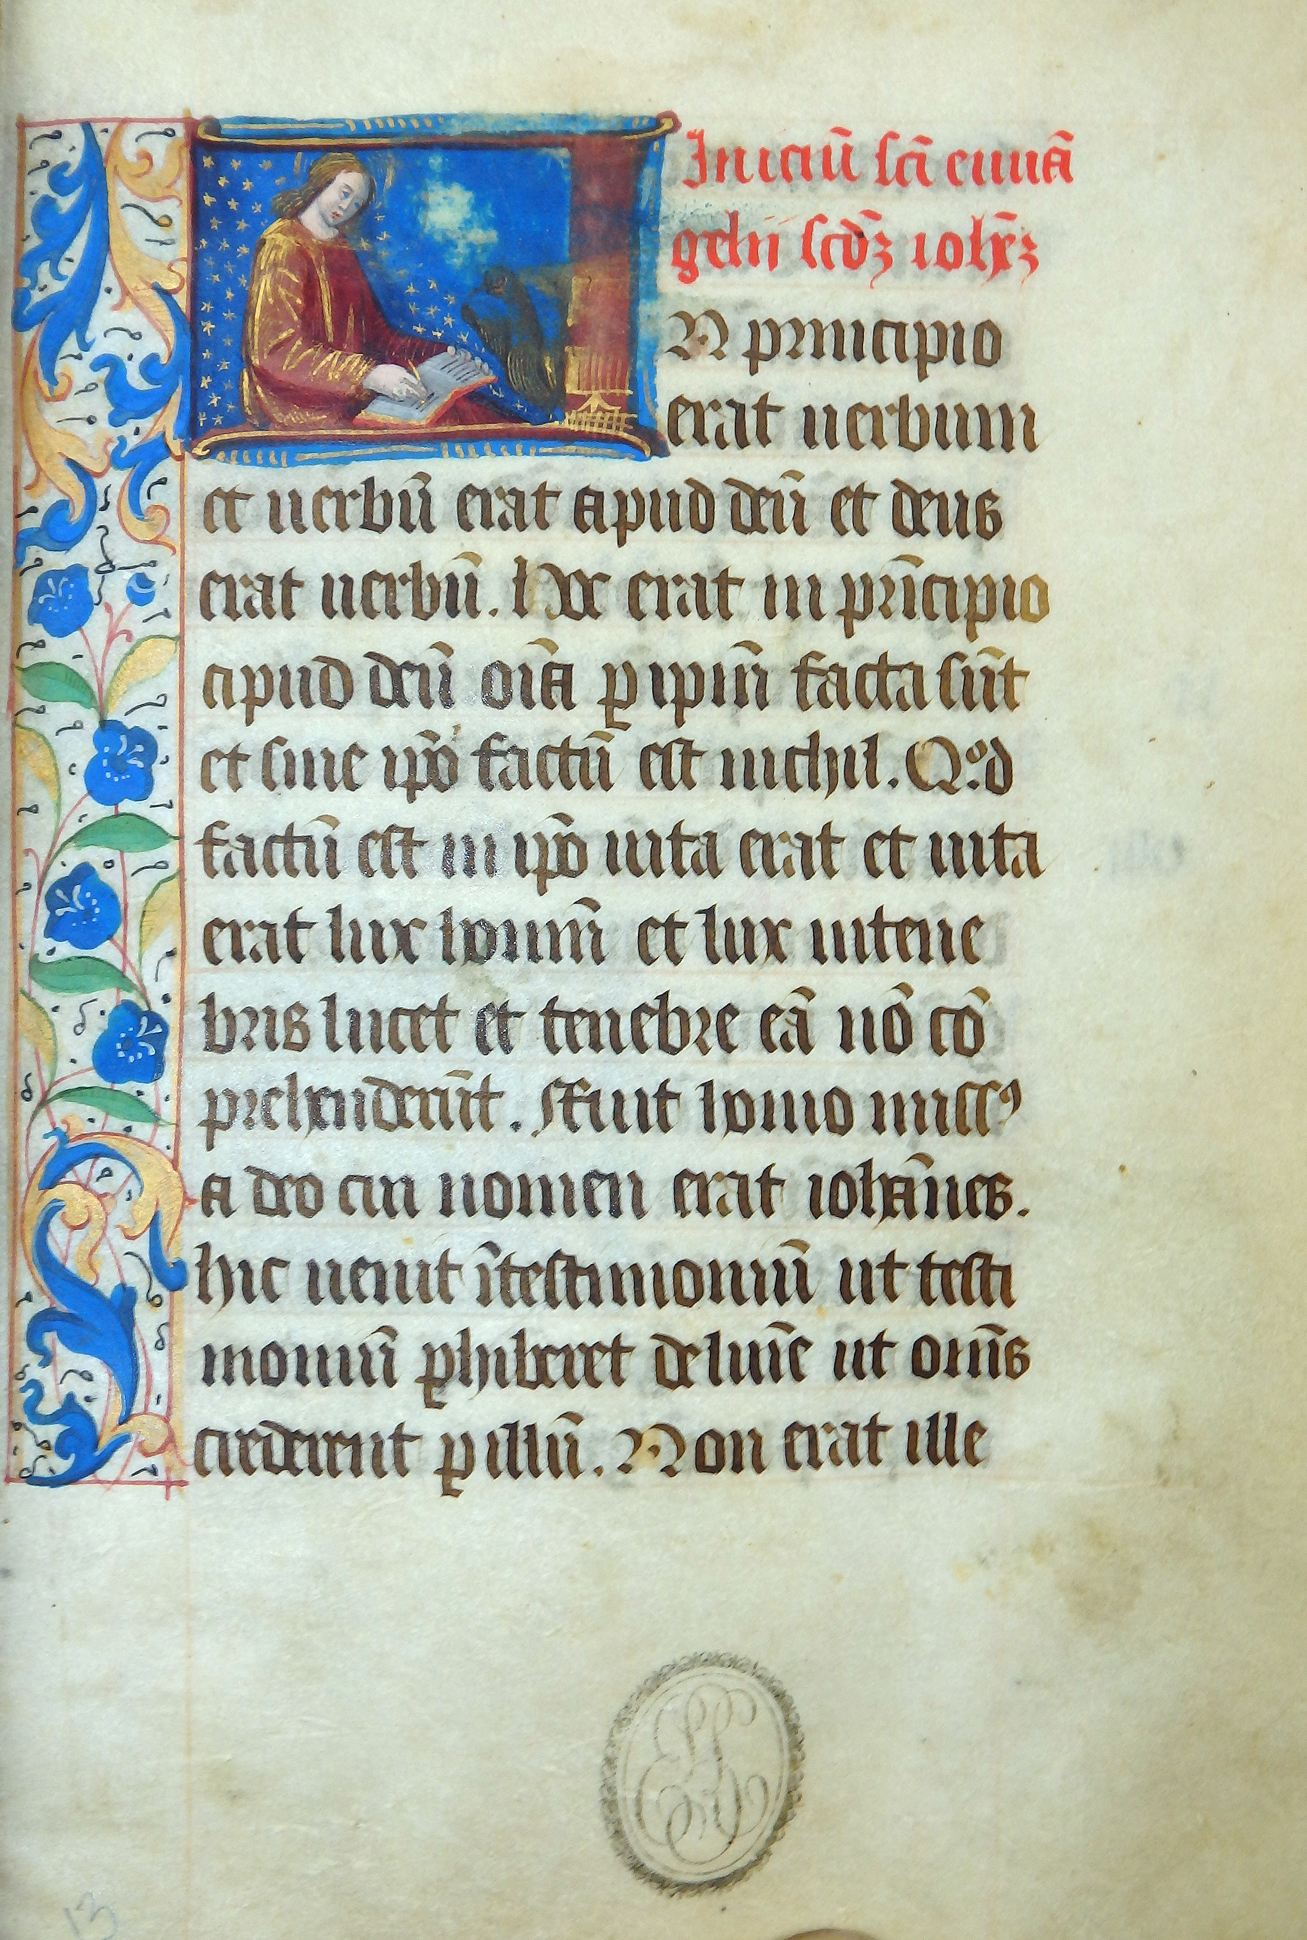 Iniciū sc̄i euuā
gelii scd̄ꝫ ioh̄eꝫ
N principio
erat uerbum
et uerbū erat apud deū et deus
erat uerbū. Hoc erat in prīcipio
apud deū oīa ꝑ ipm̄ facta sūt
et sine ip̄o factū est nichil. Qͦd
factū est in ip̄o uita erat et uita
erat lux homīnū et lux intene
bris lucet et tenebre eā nō cō
prehenderūt. Fuit homo missꝰ
a deo cui nomen erat iohānes.
hic uenit ī testimoniū ut testi
moniū ꝑhiberet de lumīe ut omēs
crederent ꝑ illū. Non erat ille
13